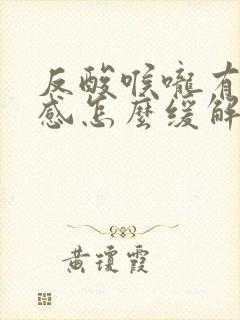 反酸喉嚨有
感怎麼緩解
黃瓊霞